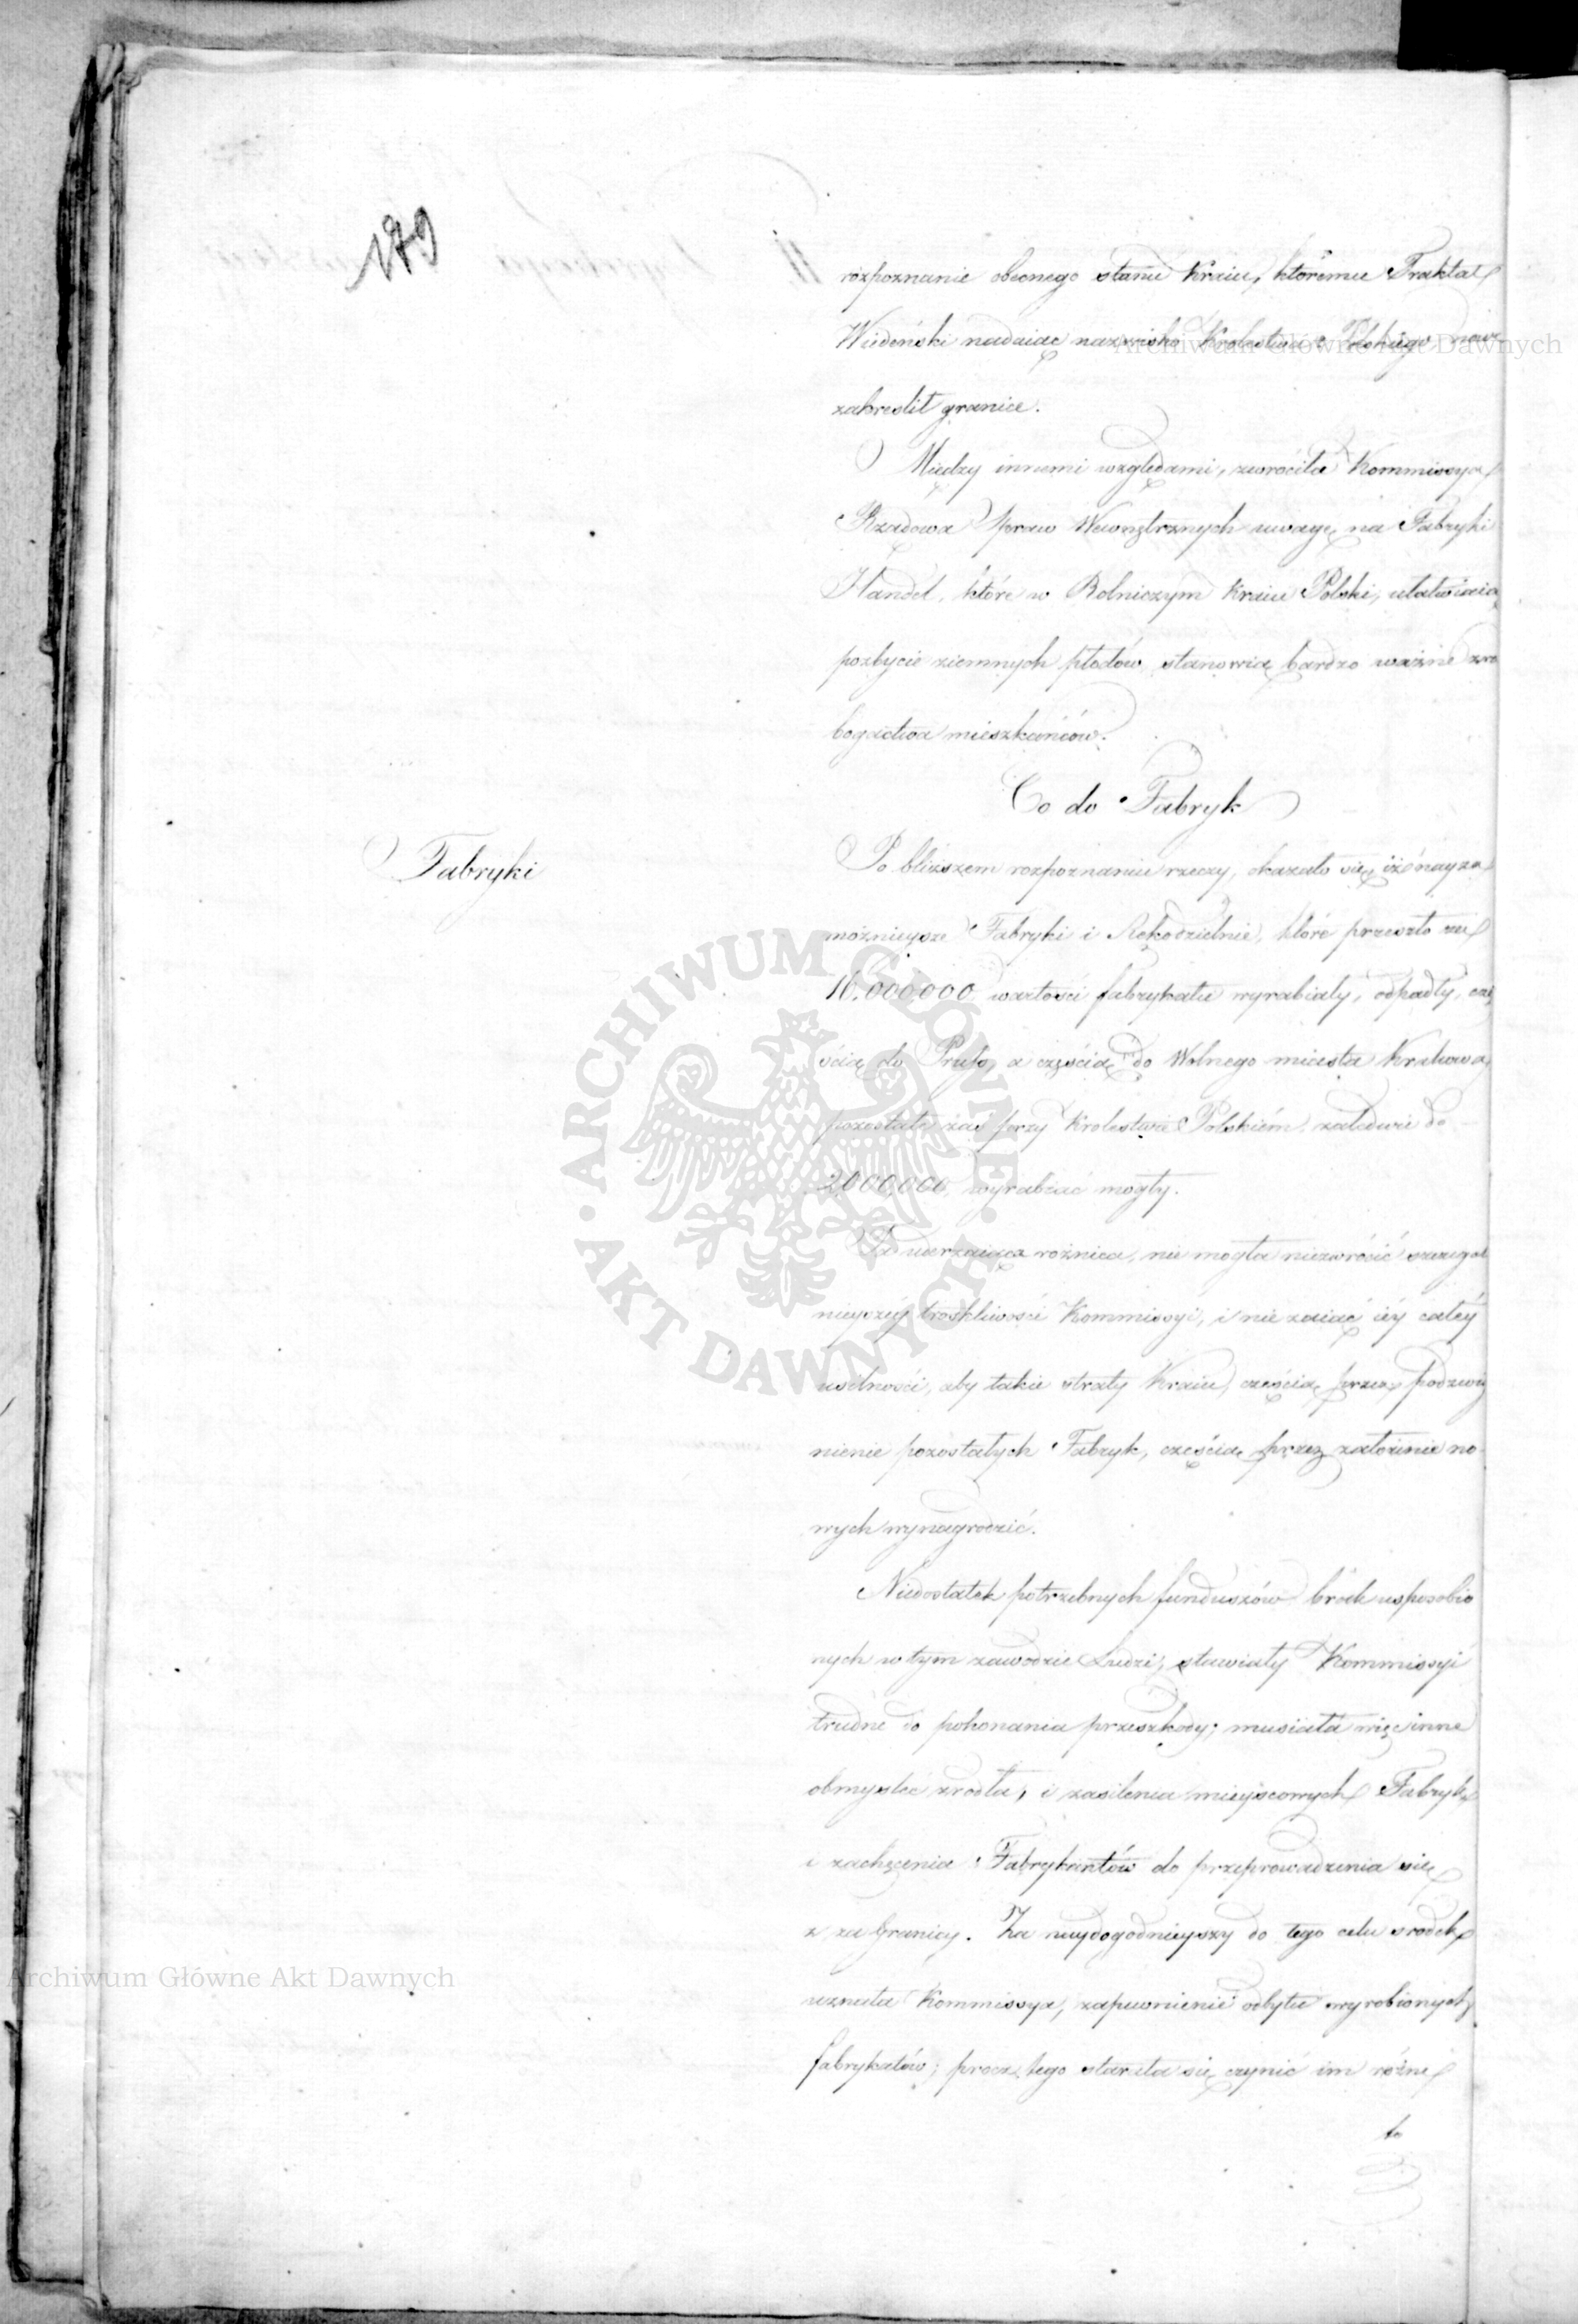 179
rozpoznanie obecnego stanu Kraiu, któremu Traktat
Wiedeński nadaiąc nazwisko Krolestwa Polskiego, nowe
zakreslił granice.
Między innemi względami, zwróciła Kommissya
Rządowa Spraw Wewnętrznych uwagę na Fabryki
Handel, które w Rolniczym Kraiu Polski, ułatwiaią
pozbycie ziemnych płodów, stanowią bardzo ważne
bogactwa mieszkańców.
Co do Fabryk
Fabryki
Po bliższem rozpoznaniu rzeczy, okazało się iż nayza
możnieysze Fabryki i Rękodzielnie, które przeszło za
16.000000 wartości fabrykatu wyrabiały, odpadły, czę
ścią do Pruss, a częścią do Wolnego miasta Krakowa,
pozostałe zaś przy Krolestwie Polskiém, zaledwie do
2,000,000 wyrabiać mogły.
Ta uderzaiąca rożnica, nie mogła niezwrócić szczegól
nieyszéy troskliwości Kommissyi, i nie zaiąć iéy całéy
usilności, aby takie straty Kraiu, częścią przez podzwig
nienie pozostałych Fabryk, częścią przez założenie no
wych wynagrodzić.
Niedostatek potrzebnych funduszów brak usposobio
nych w tym zawodzie Ludzi, stawiały Kommissyi
trudne do pokonania przeszkody; musiała więc inne
obmyslić zrodła, i zasilenia mieyscowych Fabryk
i zachęcenia Fabrykantów do przeprowadzenia się
z za Granicy. Za naydogodnieyszy do tego celu srodek
uznała Kommissya, zapewnienie odbytu wyrobionych
fabrykatów; procz tego starała się czynić im różne
Archiwum Główne Akt Dawnych
Archiwum Główne Akt Dawnych
ARCHIWUM GŁÓWNE AKT DAWNYCH